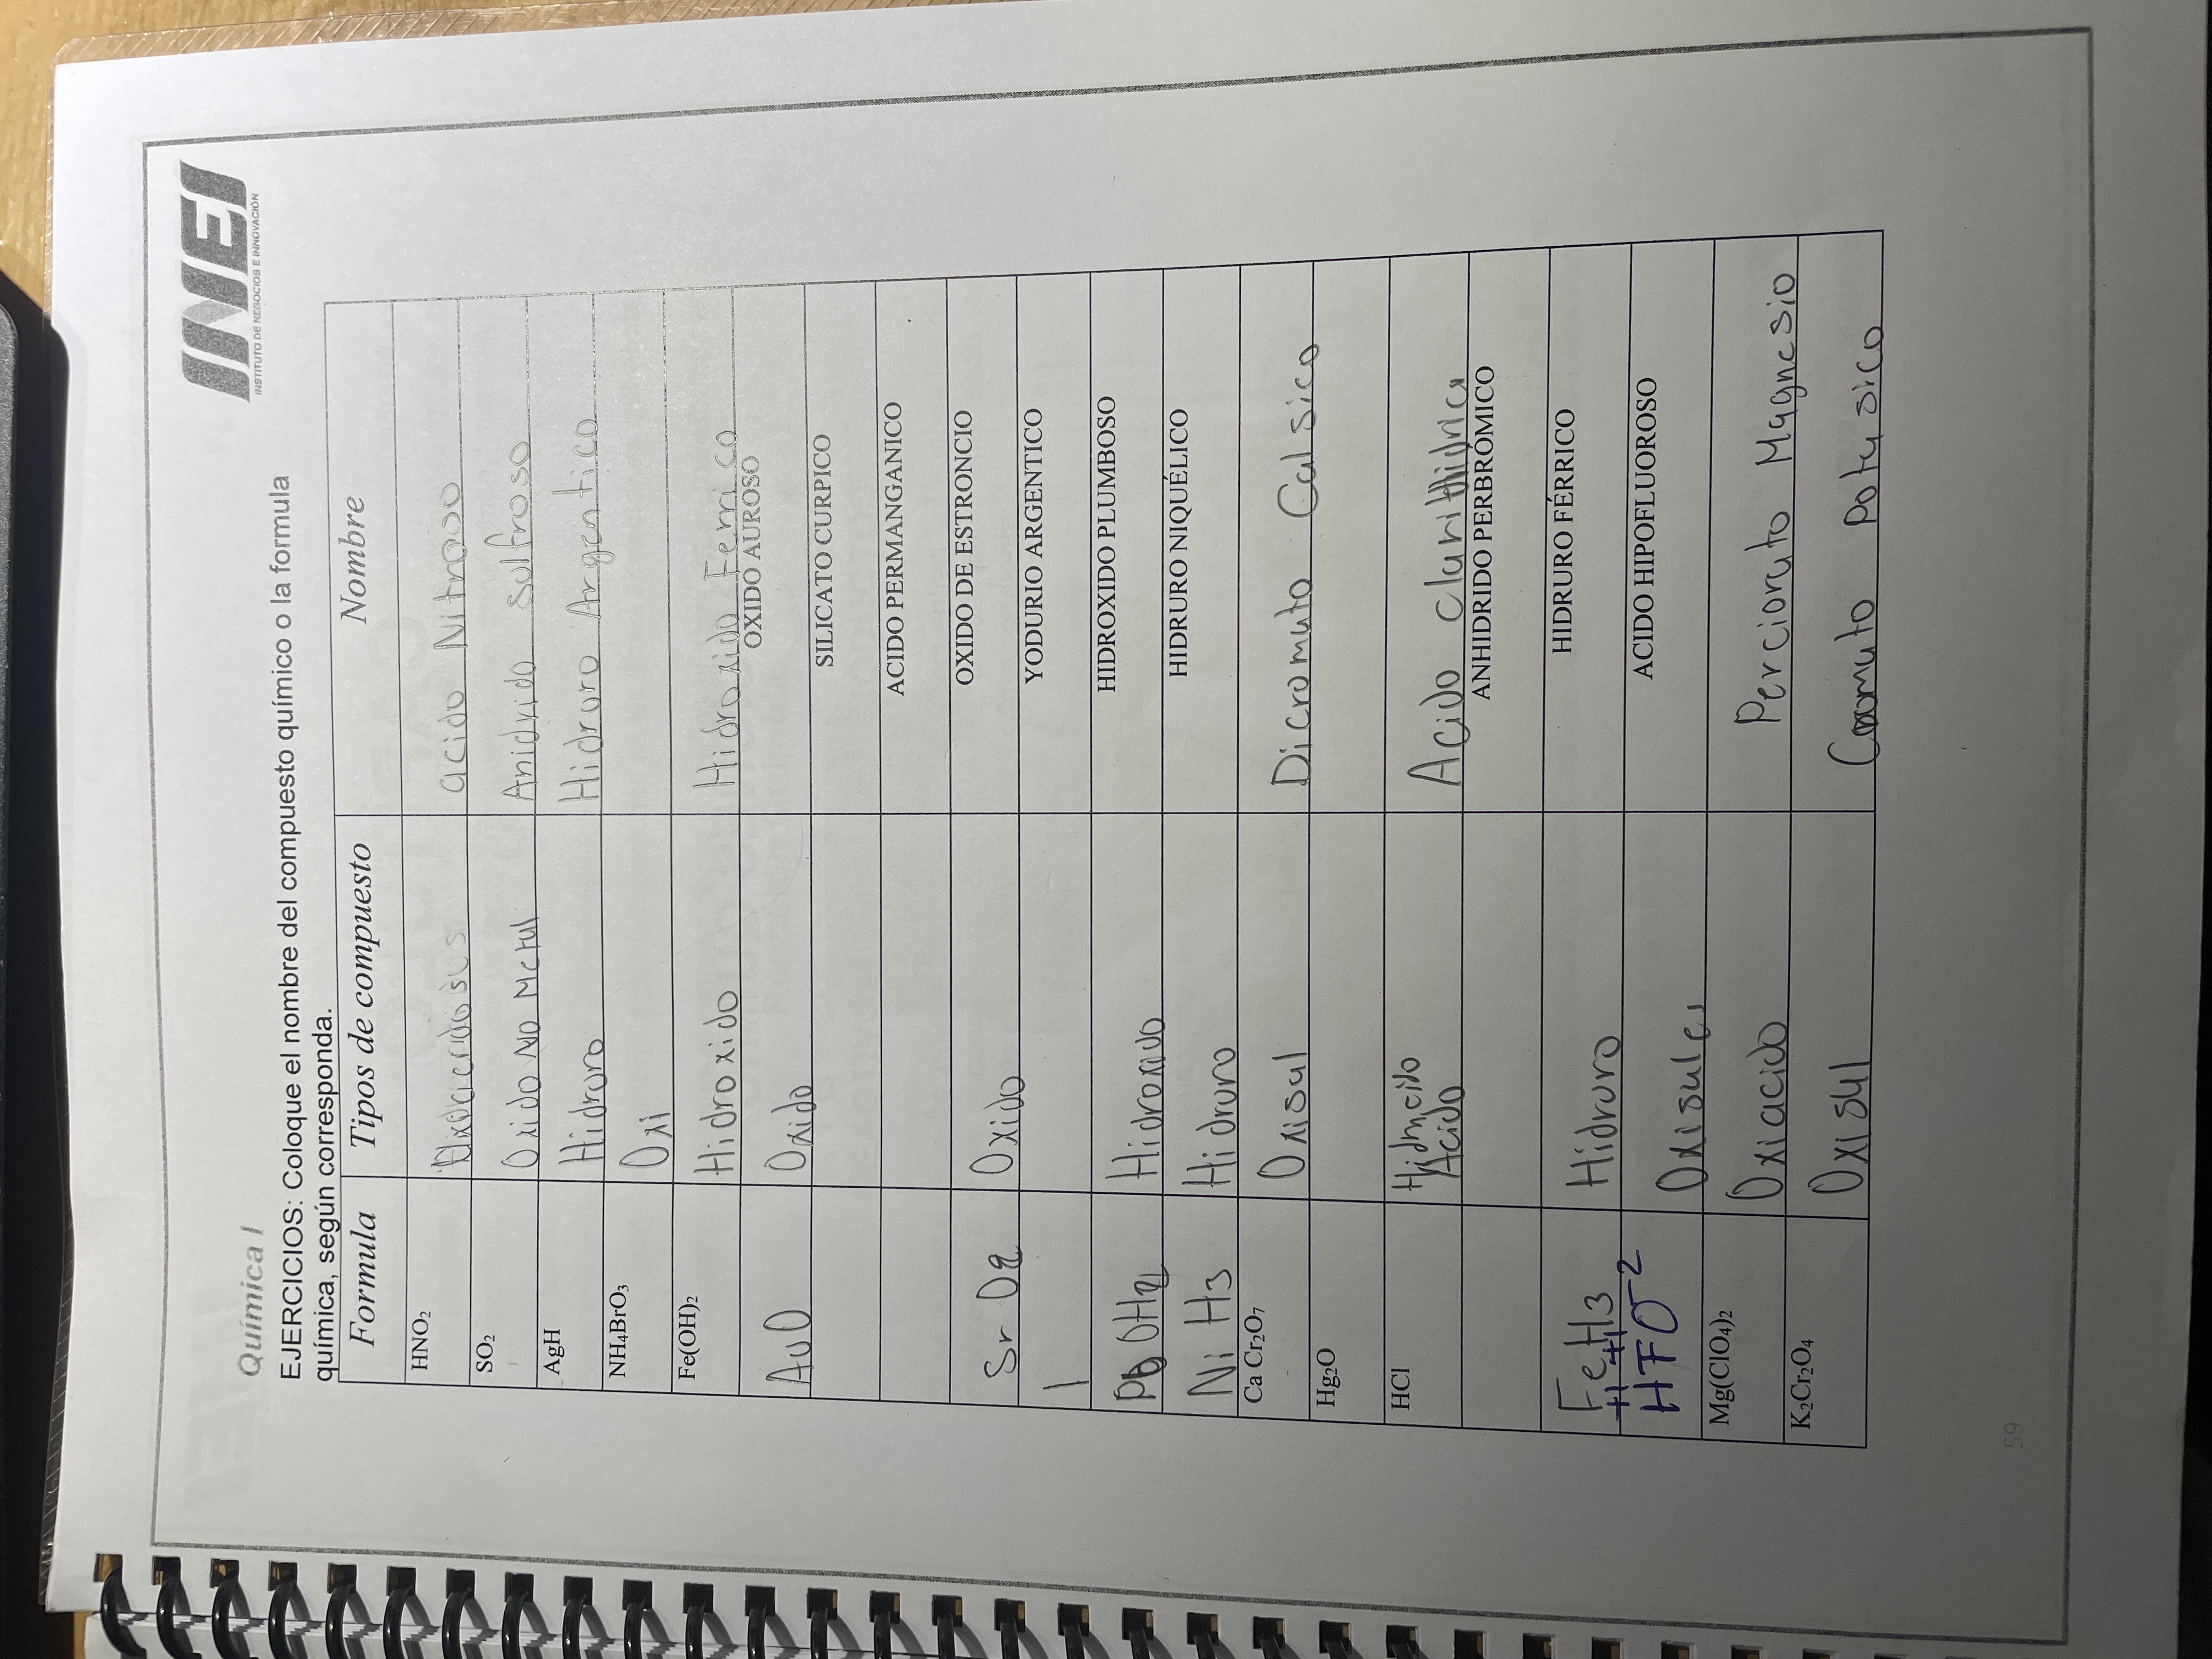 INEI
INSTITUTO DE NEGOCIOS E INNOVACIÓN
Química I
EJERCICIOS: Coloque el nombre del compuesto químico o la formula
química, según corresponda.
Formula Tipos de compuesto Nombre
HNO₂ acido Nitroso
SO₂ Oxido No Metal Anidrido sulfroso
AgH Hidruro Hidruro Argentico
NH₄BrO₃ Oxi
Fe(OH)₂ Hidroxido Hidroxido Ferrico
AuO Oxido OXIDO AUROSO
SILICATO CURPICO
ACIDO PERMANGANICO
Sr O₂ Oxido OXIDO DE ESTRONCIO
I YODURIO ARGENTICO
Pb OH₂ Hidroxido HIDROXIDO PLUMBOSO
Ni H3 Hidruro HIDRURO NIQUÉLICO
Ca Cr₂O₇ Oxisal Dicromato Calsico
Hg₂O
HCl Acido Acido
ANHIDRIDO PERBRÓMICO
FeH3 Hidruro HIDRURO FÉRRICO
+1 +1
HFO⁻² Oxisales ACIDO HIPOFLUOROSO
Mg(ClO₄)₂ Oxiacido Perclorato Magnesio
K₂Cr₂O₄ Oxisal Cromato potasico
59